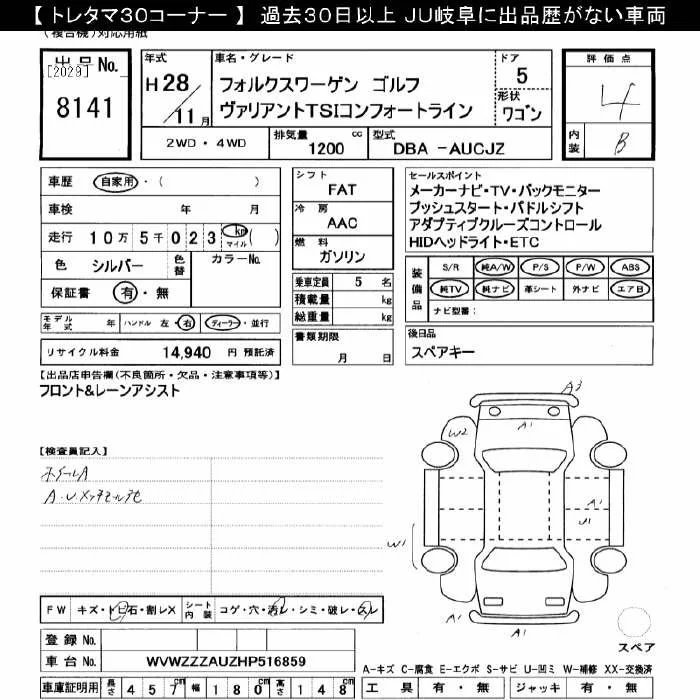 【 トレタマ30コーナー 】 過去30日以上 JU岐阜に出品歴がない車両
(複合機)対応用紙
出品No.
[2029]
8141
年式
H28
11月
車名・グレード
フォルクスワーゲン ゴルフ
ヴァリアントTSIコンフォートライン
ドア
5
形状
ワゴン
2WD・4WD
排気量 1200 cc
型式 DBA -AUCJZ
評価点
4
内装
B
車歴 自家用・( )
車検 年 月
走行 10万5千023 km マイル ( )
色 シルバー 色替
カラーNo.
保証書 有・無
モデル年式 年
ハンドル 左・右
ディーラー・並行
リサイクル料金 14,940 円 預託済
シフト
FAT
冷房
AAC
燃料
ガソリン
乗車定員 5 名
積載量 kg
総重量 kg
書類期限
月 日
セールスポイント
メーカーナビ・TV・バックモニター
プッシュスタート・パドルシフト
アダプティブクルーズコントロール
HIDヘッドライト・ETC
装備品
S/R 純A/W P/S P/W ABS
純TV 純ナビ 革シート 外ナビ エアB
ナビ型番:
後日品
スペアキー
【出品店申告欄(不良箇所・欠品・注意事項等)】
フロント&レーンアシスト
【検査員記入】
ホイールA
A・U
A3
A1
W2
A1
U1
W1
A1
A1
スペア
FW キズ・トビ石・割レX
シート内装 コゲ・穴・汚レ・シミ・破レ・スレ
登録 No.
車台 No. WVWZZZAUZHP516859
車庫証明用 長さ 457cm 幅 180cm 高さ 148cm
A-キズ C-腐食 E-エクボ S-サビ U-凹ミ W-補修 XX-交換済
工具 有・無 ジャッキ 有・無